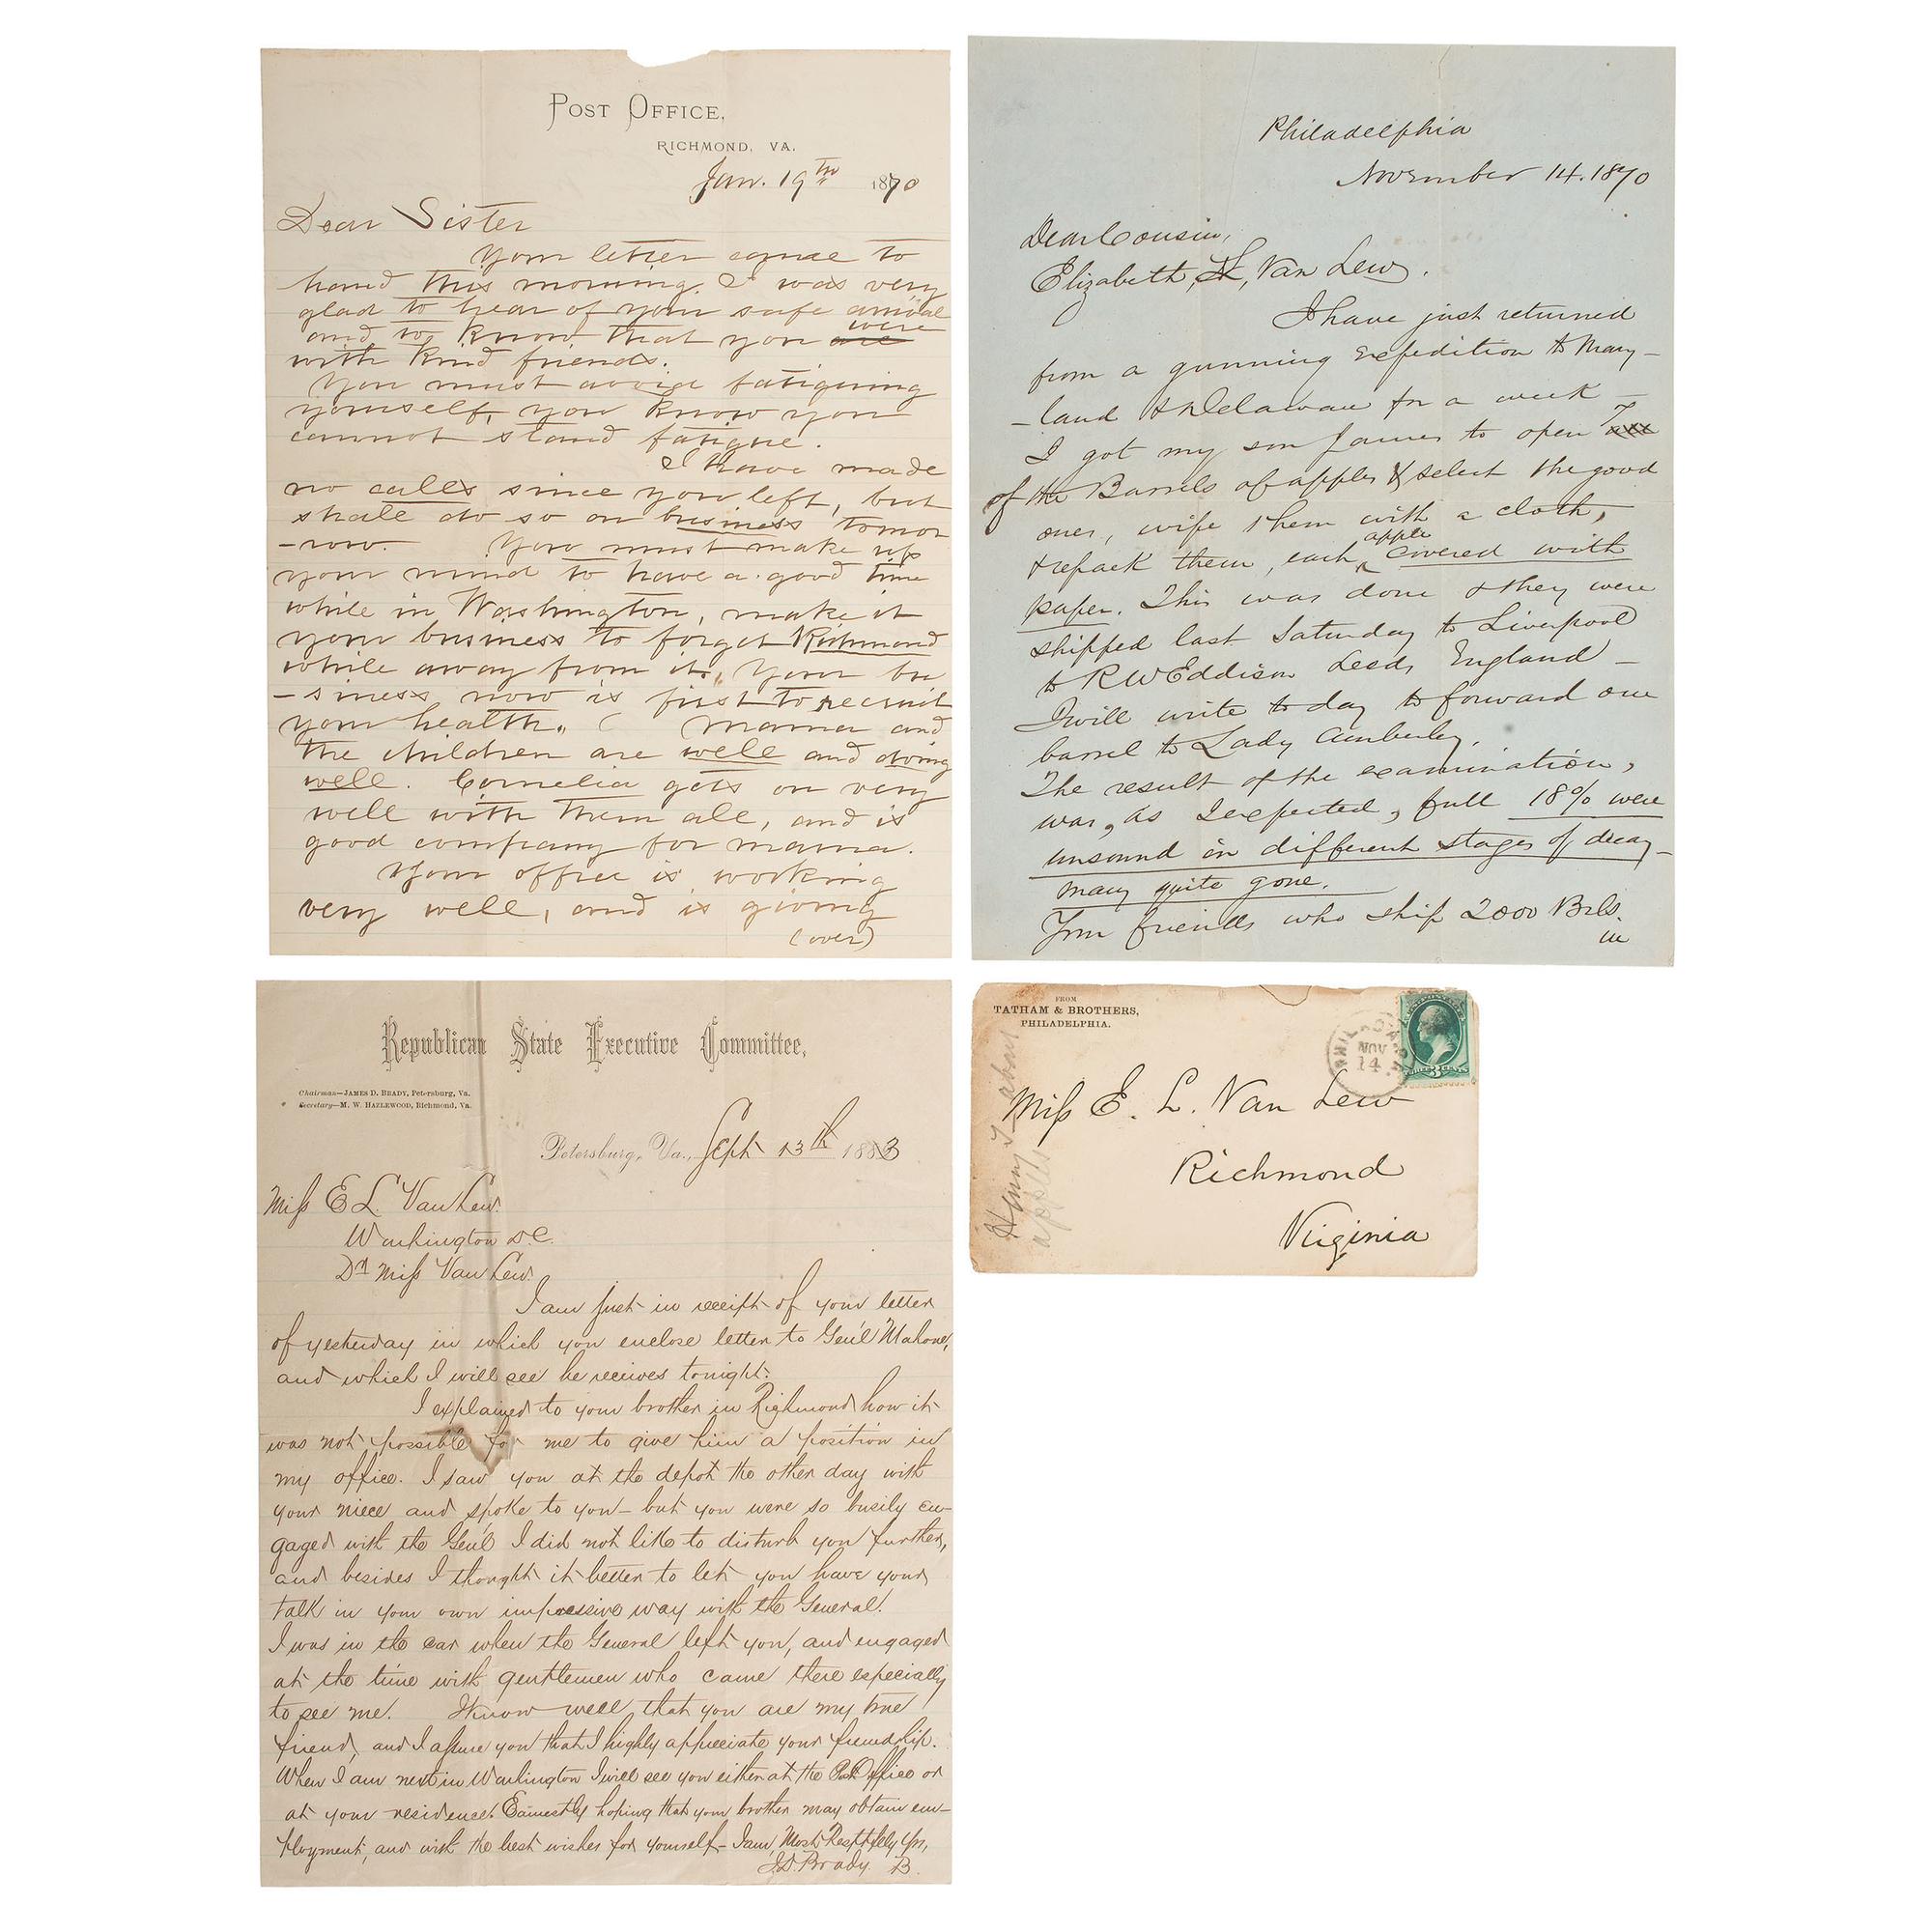 POST OFFICE,
RICHMOND, VA.
Jan. 19th 1870
Dear Sister
Your letter came to
hand this morning. I was very
glad to hear of your safe arrival
and to know that you are were
with kind friends.
You must avoige fatiguing
yourself, you know you
cannot stand fatigue.
I have made
no calls since you left, but
shall do so on business tomor
-row. You must make up
your mind to have a good time
while in Washington, make it
your business to forget Richmond
while away from it. Your bu
-siness now is first to recruit
your health. ( Mama and
the children are well and doing
well. Cornelia gets on very
well with them all, and is
good company for mama.
Your office is working
very well, and is giving
(over)
Philadelphia
November 14. 1870
Dear Cousin,
Elizabeth, L, Van Lew,.
I have just returned
from a gunning expedition to Mary-
-land & Delaware for a week -
I got my son James to open 7
of the Barrels of apples & select the good
ones, wipe them with a cloth,
& repack them, each apple covered with
paper. This was done & they were
shipped last Saturday to Liverpool
to R W Eddison Leeds England -
I will write to day to forward one
barrel to Lady Amberley.
The result of the examination,
was, as I expected, full 18% were
unsound in different stages of decay -
many quite gone.
Your friends who ship 2000 Brls.
in
Republican State Executive Committee,
Chairman—JAMES D. BRADY, Petersburg, Va.
Secretary—M. W. HAZLEWOOD, Richmond, Va.
Petersburg, Va., Sept 13th 1883
Miss E L. Van Lew.
Washington D.C.
Dr Miss Van Lew.
I am just in receipt of your letter
of yesterday in which you enclose letter to Gen'l Mahone,
and which I will see he receives tonight.
I explained to your brother in Richmond how it
was not possible for me to give him a position in
my office. I saw you at the depot the other day with
your niece and spoke to you - but you were so busily en-
gaged with the Gen'l I did not like to disturb you further,
and besides I thought it better to let you have your
talk in your own impressive way with the General.
I was in the car when the General left you, and engaged
at the time with gentlemen who came there especially
to see me. I know well that you are my true
friend, and I assure you that I highly appreciate your friendship.
When I am next in Washington I will see you either at the Post Office or
at your residence. Earnestly hoping that your brother may obtain em-
ployment, and with the best wishes for yourself - I am, Most Resptfully Yrs,
J.D. Brady B.
FROM
TATHAM & BROTHERS,
PHILADELPHIA.
NOV
14
Miss E. L. Van Lew
Richmond
Virginia
Henry T about
apples